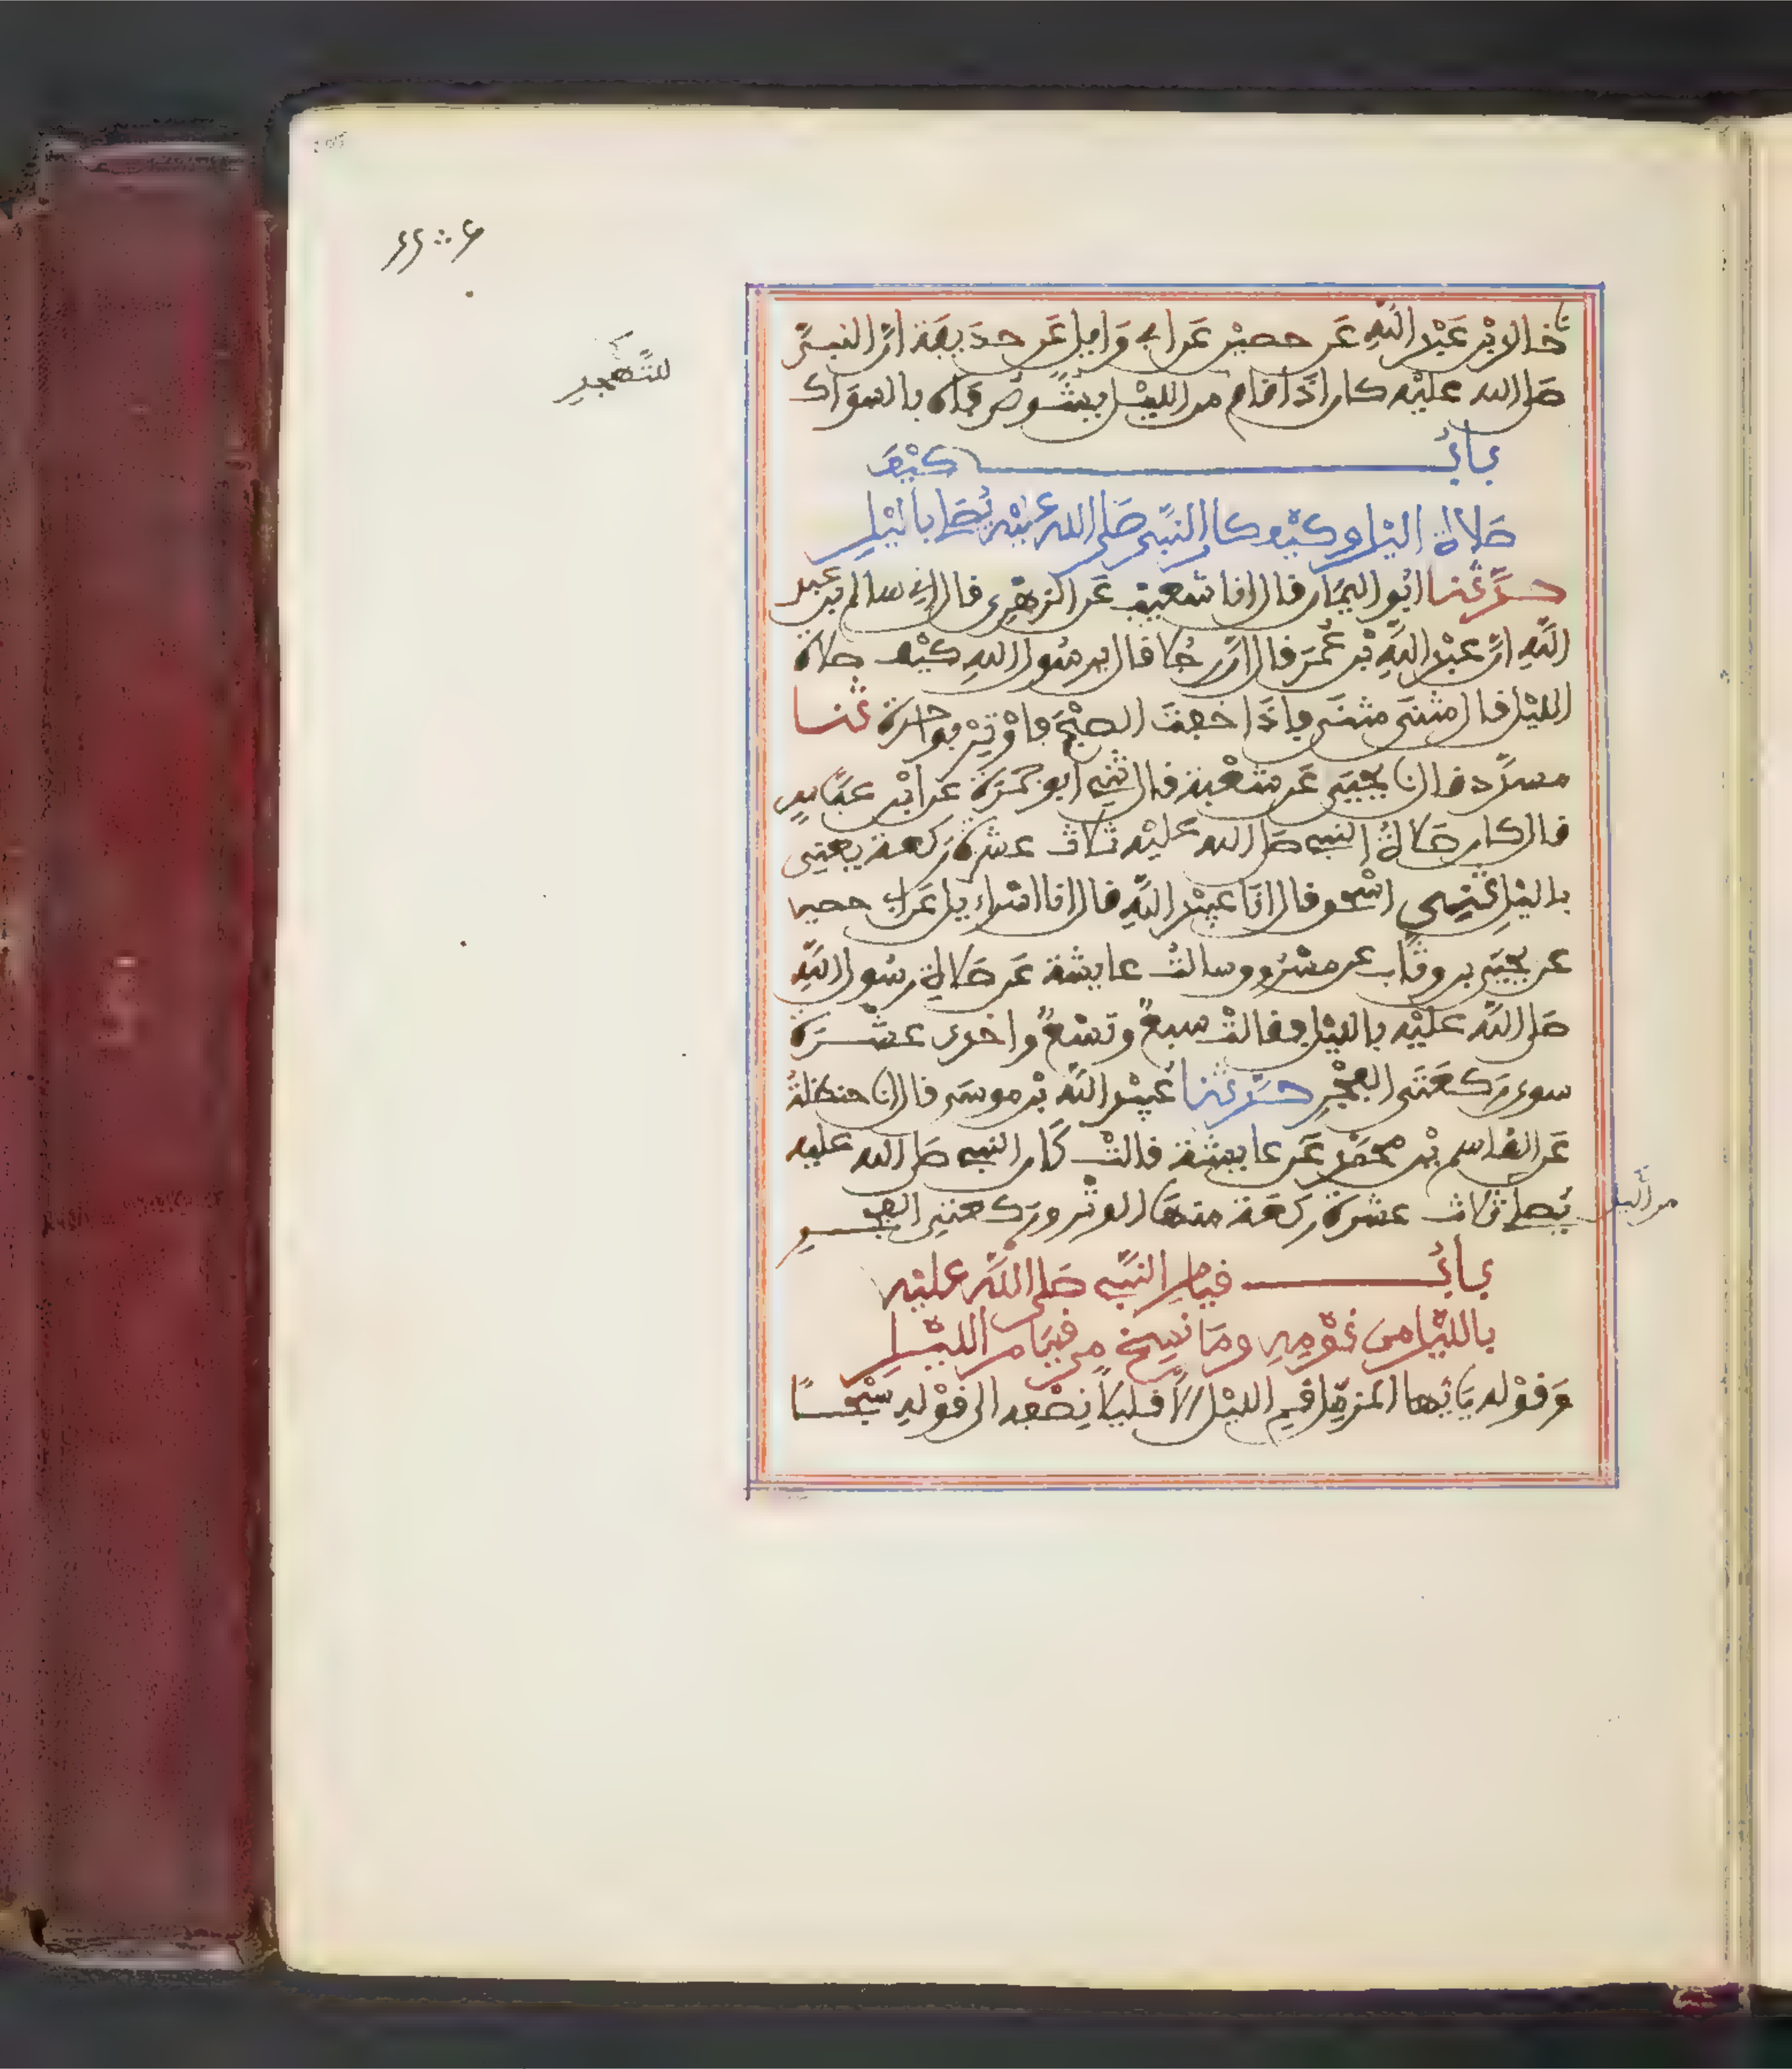 للتَّهجدِ
خالد بْن عَبْد اللَّهِ عَن حصيْن عَن ابي وَايل عَن حذَيفَة انَّ النبيَّ
صَلى الله عليْه كان اذَا قام من الليْل يشُوصُ فَاه بالسوَاك
بَابُ كيْفَ
صَلاة اليْل وكيْف كان النبيّ صَلى الله عليْه يُصَلي باليْلِ
حدَّثنا ابُو اليمَان قال انا شعيب عَن الزهْرِي قال اني سالم بْن عبد
اللَّهِ انَّ عبْد اللَّهِ بْن عُمَرَ قال انَّ رجُلا قال يرسُول اللهِ كيْف صلاة
الليْل قال مثنَى مثنَى فإذَا خفتَ الصبْحَ فأوْتِرْ بواحدة ثنا
مسدَّد قال نا يحيَى عَن شعْبة قال ثني أبو جَمرَة عن ابْن عبَّاسٍ
قال كان صَلاةُ النبي صَلى الله عَليْه ثلاث عشرة رَكعة يعني
بالليْلِ ثني اسْحٰق قال انَا عبيْد اللَّهِ قال انا اسْراءيل عَن ابي حصين
عن يحيَى بن وثَّاب عن مسْرُوق سالتُ عايشة عَن صَلاةِ رسُول اللَّهِ
صَلى اللَّه عَليْه بالليْل فقالتْ سبعٌ وتسْعٌ واحدى عشْرَة
سوى رَكعَتَي الفجْرِ حدَّثنا عُبيْد اللَّه بْن موسَى قال انا حنظلةُ
عَن القاسم بْن محَمَّد عَن عايشة قالتْ كَان النبي صَلى الله عليه
يُصَلي ثلاث عشرة ركعَة منهَا الوتْر وركعتي الفجرِ
من اليْل
بَابُ قيام النبِّي صَلى اللَّه عليْه
بالليْل من نَوْمِهِ ومَا نسِخَ من قيَام الليْلِ
وَقوْله يَأيُّها المزمِّل قمِ الليْل إلاَّ قليلاً نِصْفه الى قوْلهِ سَبْحًا